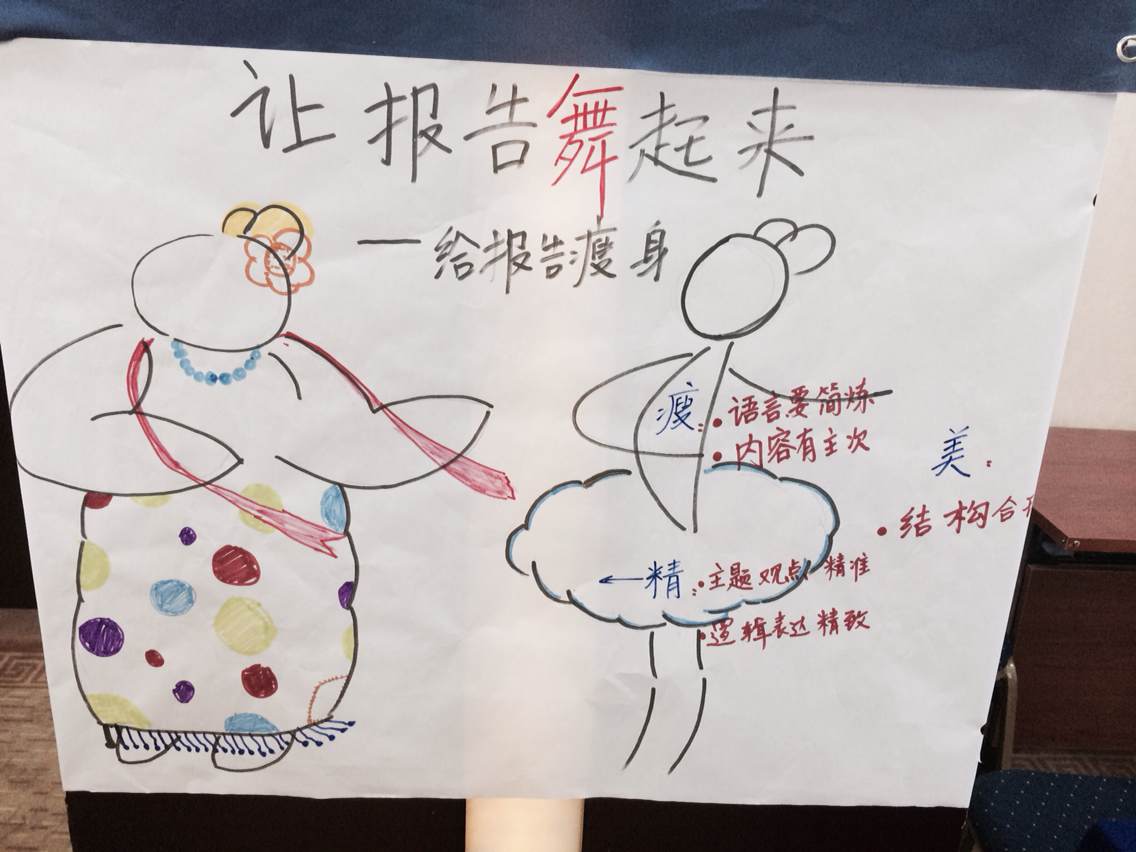 让报告舞起来
一给报告瘦身
瘦：
• 语言要简炼
• 内容有主次
美：
• 结构合
←精：
• 主题观点精准
• 逻辑表达精致